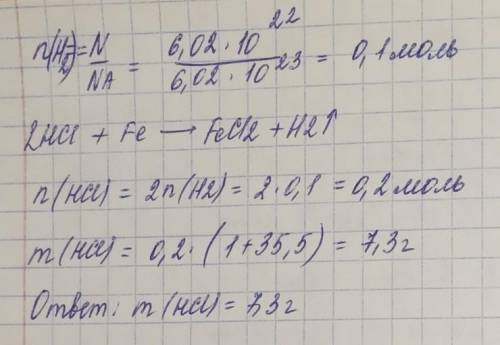 n(H2) = N/NA = 6,02 · 10^22 / 6,02 · 10^23 = 0,1 моль
2HCl + Fe → FeCl2 + H2↑
n(HCl) = 2n(H2) = 2 · 0,1 = 0,2 моль
m(HCl) = 0,2 · (1 + 35,5) = 7,3 г
Ответ: m(HCl) = 7,3 г